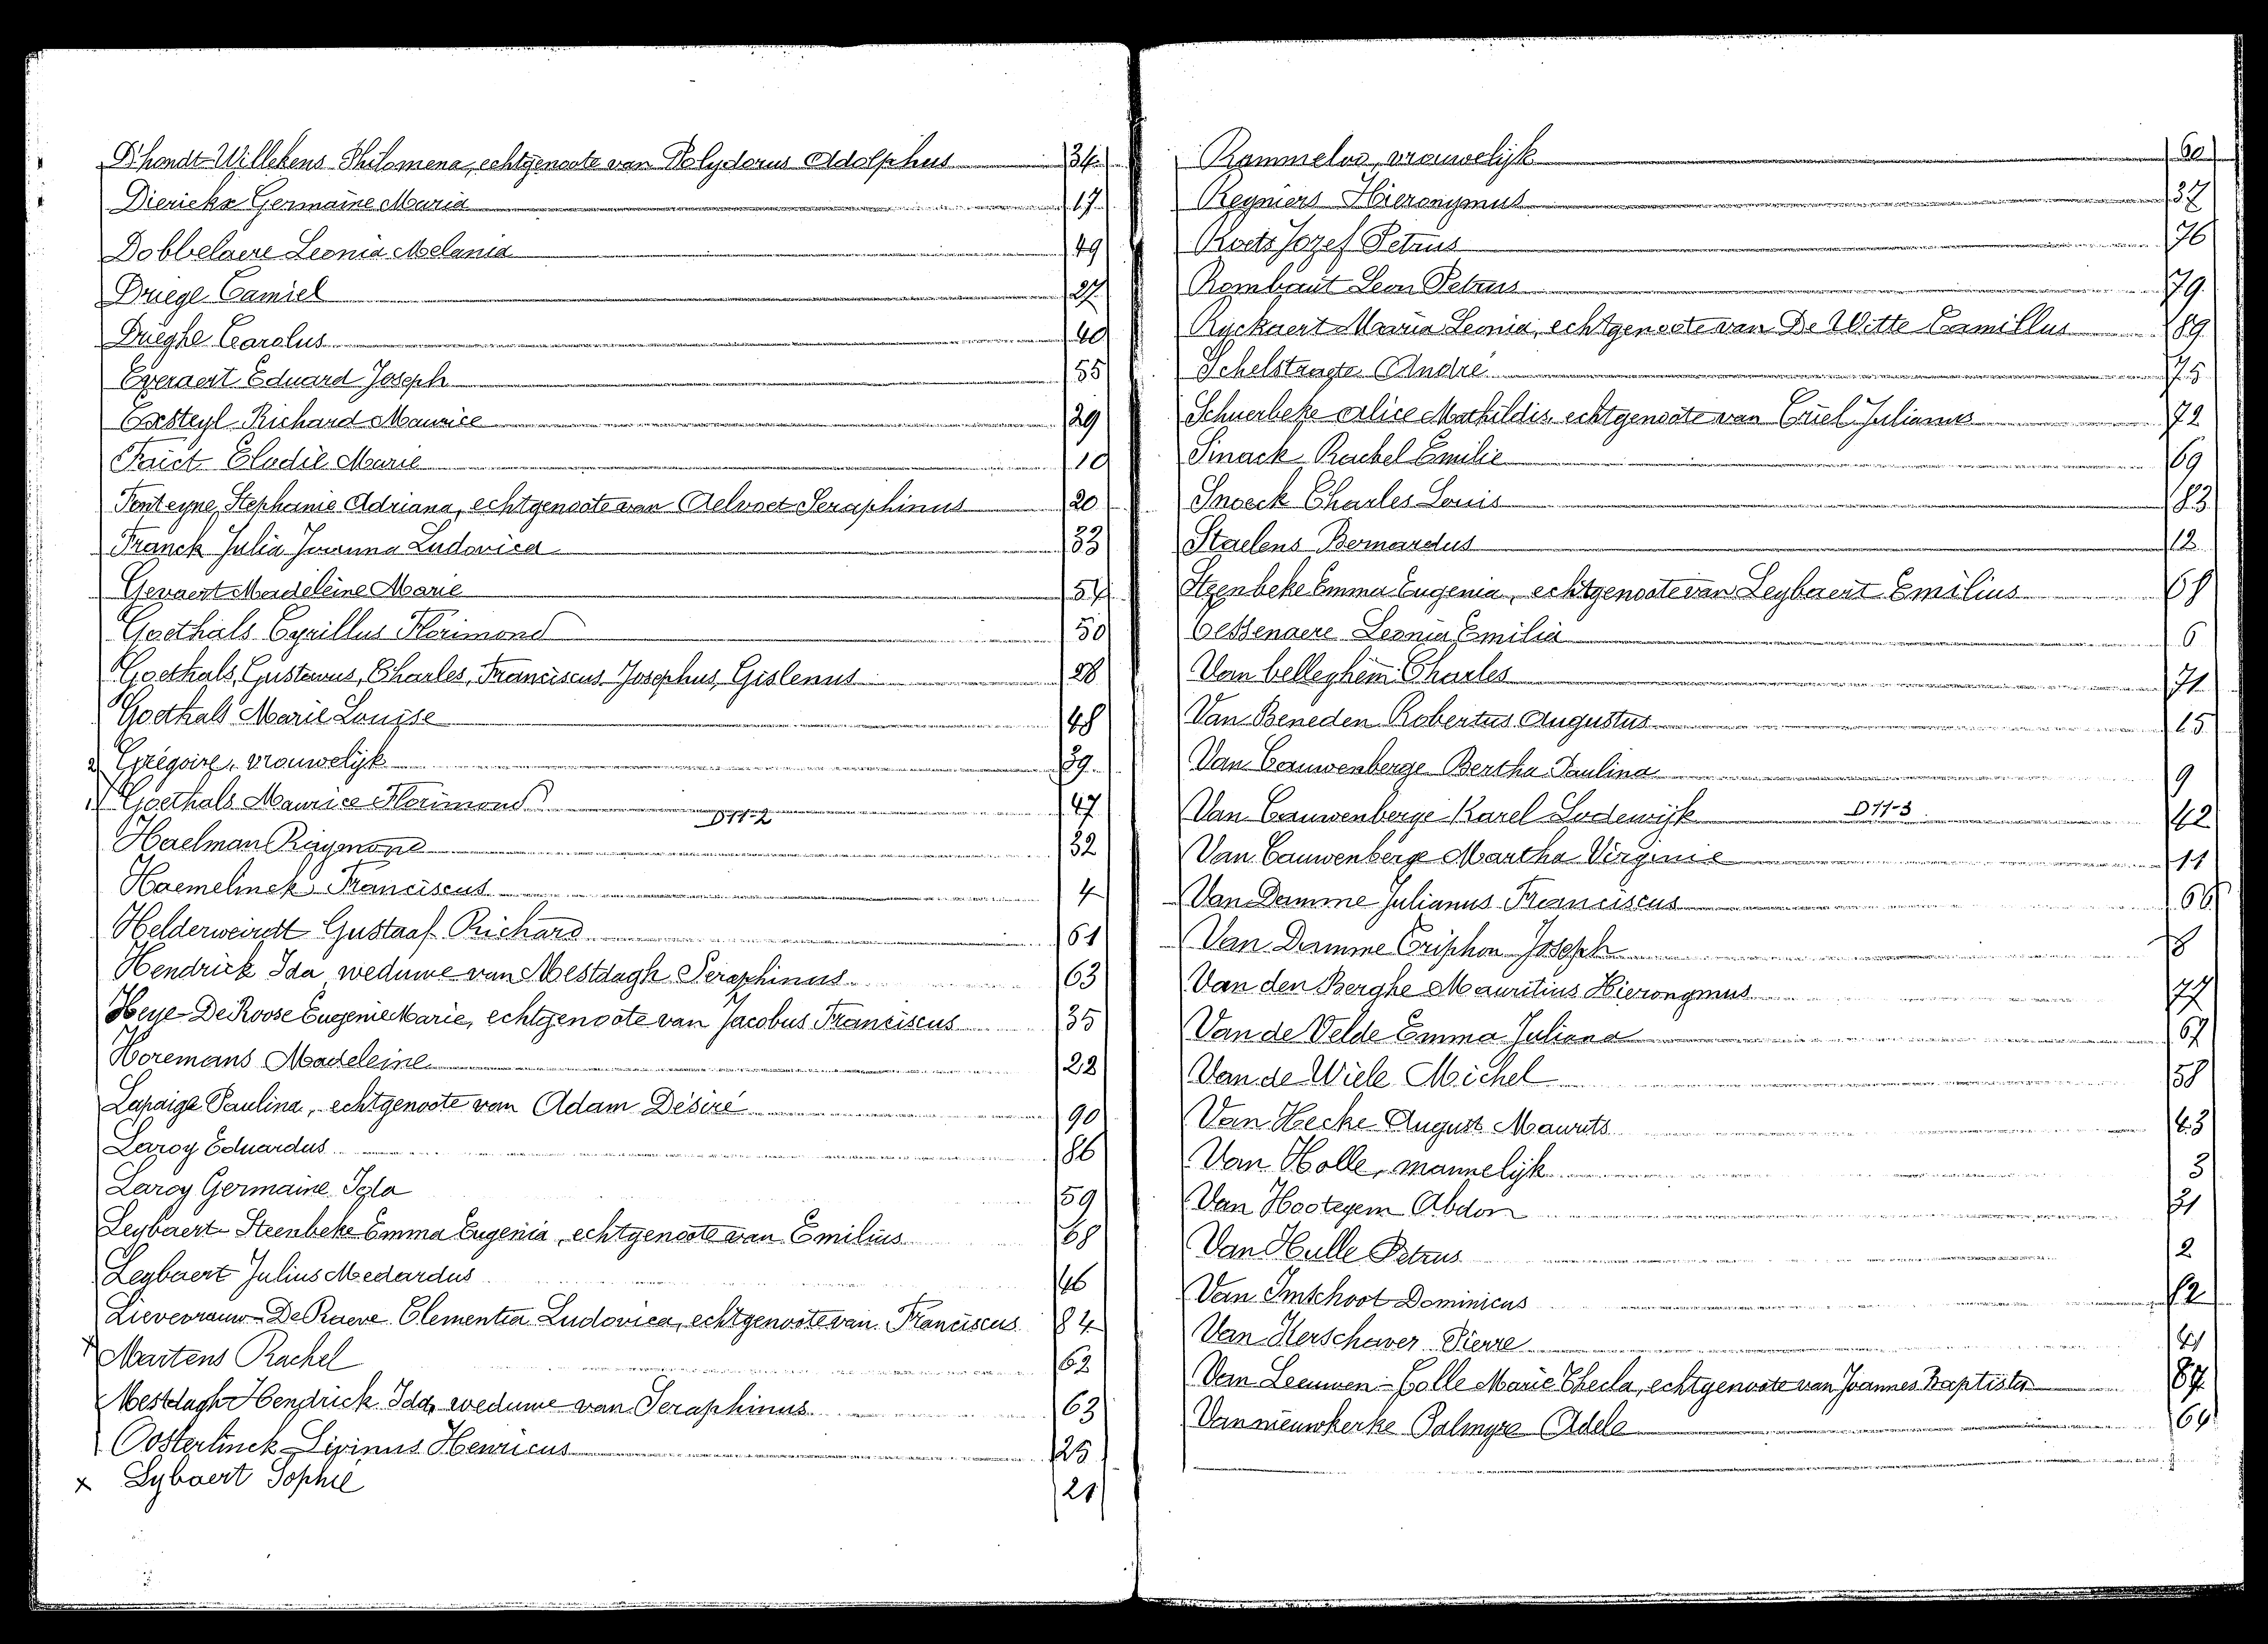 D'hondt-Willekens Philomena, echtgenoote van Polydorus Adolphus 34
Dierickx Germaine Maria 17
Dobbelaere Leonia Melania 49
Driege Camiel 27
Drieghe Carolus 40
Everaert Eduard Joseph 55
Exsteyl Richard Maurice 29
Faict Elodie Marie 10
Fonteyne, Stephanie Adriana, echtgenoote van Aelvoet Seraphinus 20
Franck Julia Joanna Ludovica 33
Gevaert Madeleine Marie 54
Goethals Cyrillus Florimond 50
Goethals, Gustavus, Charles, Franciscus Josephus, Gislenus 28
Goethals Marie Louise 48
2) Grégoire, vrouwelijk 39
1) Goethals Maurice Florimond 47
D11-2
Haelman Raymond 32
Haemelinck Franciscus 4
Helderweirdt Gustaaf Richard 61
Hendrick Ida, weduwe van Mestdagh Seraphinus 63
Heye-De Roose Eugenie Marie, echtgenoote van Jacobus Franciscus 35
Horemans Madeleine 22
Lapaige Paulina, echtgenoote van Adam Désiré 90
Laroy Eduardus 86
Laroy Germaine Igla 59
Leybaert-Steenbeke Emma Eugenia, echtgenoote van Emilius 68
Leybaert Julius Medardus 46
Lievevrouw-De Raeve Clementia Ludovica, echtgenoote van Franciscus 84
x Martens Rachel 62
Mestdagh-Hendrick Ida, weduwe van Seraphinus 63
Oosterlinck Livinus Henricus 25
x Lybaert Sophie 21
Rommelus, vrouwelijk 60
Regniers Hieronymus 37
Roets Jozef Petrus 76
Rombaut Leon Petrus 79
Ryckaert Maria Leonia, echtgenoote van De Witte Camillus 89
Schelstraete André 75
Schuerbeke Alice Mathildis, echtgenoote van Criel Julianus 72
Sinack Rachel Emilie 69
Snoeck Charles Louis 83
Staelens Bernardus 12
Steenbeke Emma Eugenia, echtgenoote van Leybaert Emilius 68
Uessenaere Leonia Emilia 6
Van belleghem Charles 71
Van Beneden Robertus Augustus 15
Van Cauwenberge Bertha Paulina 9
Van Cauwenberge Karel Lodewijk D11-3 42
Van Cauwenberge Martha Virginie 11
Van Damme Julianus Franciscus 66
Van Damme Criphon Joseph 8
Van den Berghe Mauritius Hieronymus 77
Van de Velde Emma Juliana 67
Van de Wiele Michel 58
Van Hecke August Maurits 43
Van Holle, mannelijk 3
Van Hootegem Abdon 31
Van Hulle Petrus 2
Van Imschoot Dominicus 82
Van Kerschaver Pierre 41
Van Leeuwen-Colle Marie Thecla, echtgenoote van Joannes Baptista 87
Van nieuwkerke Palmyre Adela 64